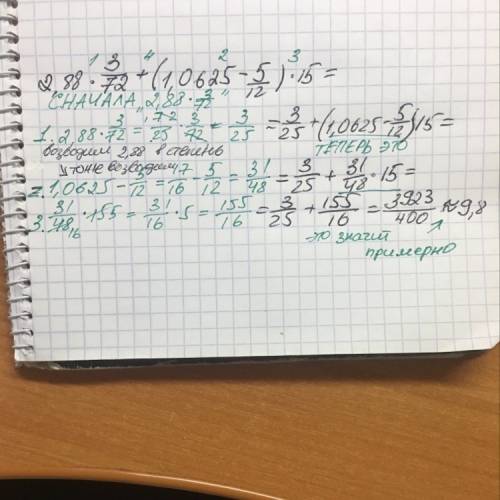 1 4 2 3
2,88 · 3/72 + (1,0625 - 5/12) · 15 =
СНАЧАЛА „2,88 · 3/72"
1. 2,88 · 3/72 = 72/25 · 3/72 = 3/25 = 3/25 + (1,0625 - 5/12) 15 =
возводим 2,88 в степень ТЕПЕРЬ ЭТО
тоже возводим
2. 1,0625 - 5/12 = 17/16 - 5/12 = 31/48 = 3/25 + 31/48 · 15 =
3. 31/48 16 · 155 = 31/16 · 5 = 155/16 = 3/25 + 155/16 = 3923/400 ≈ 9,8
это значит
примерно